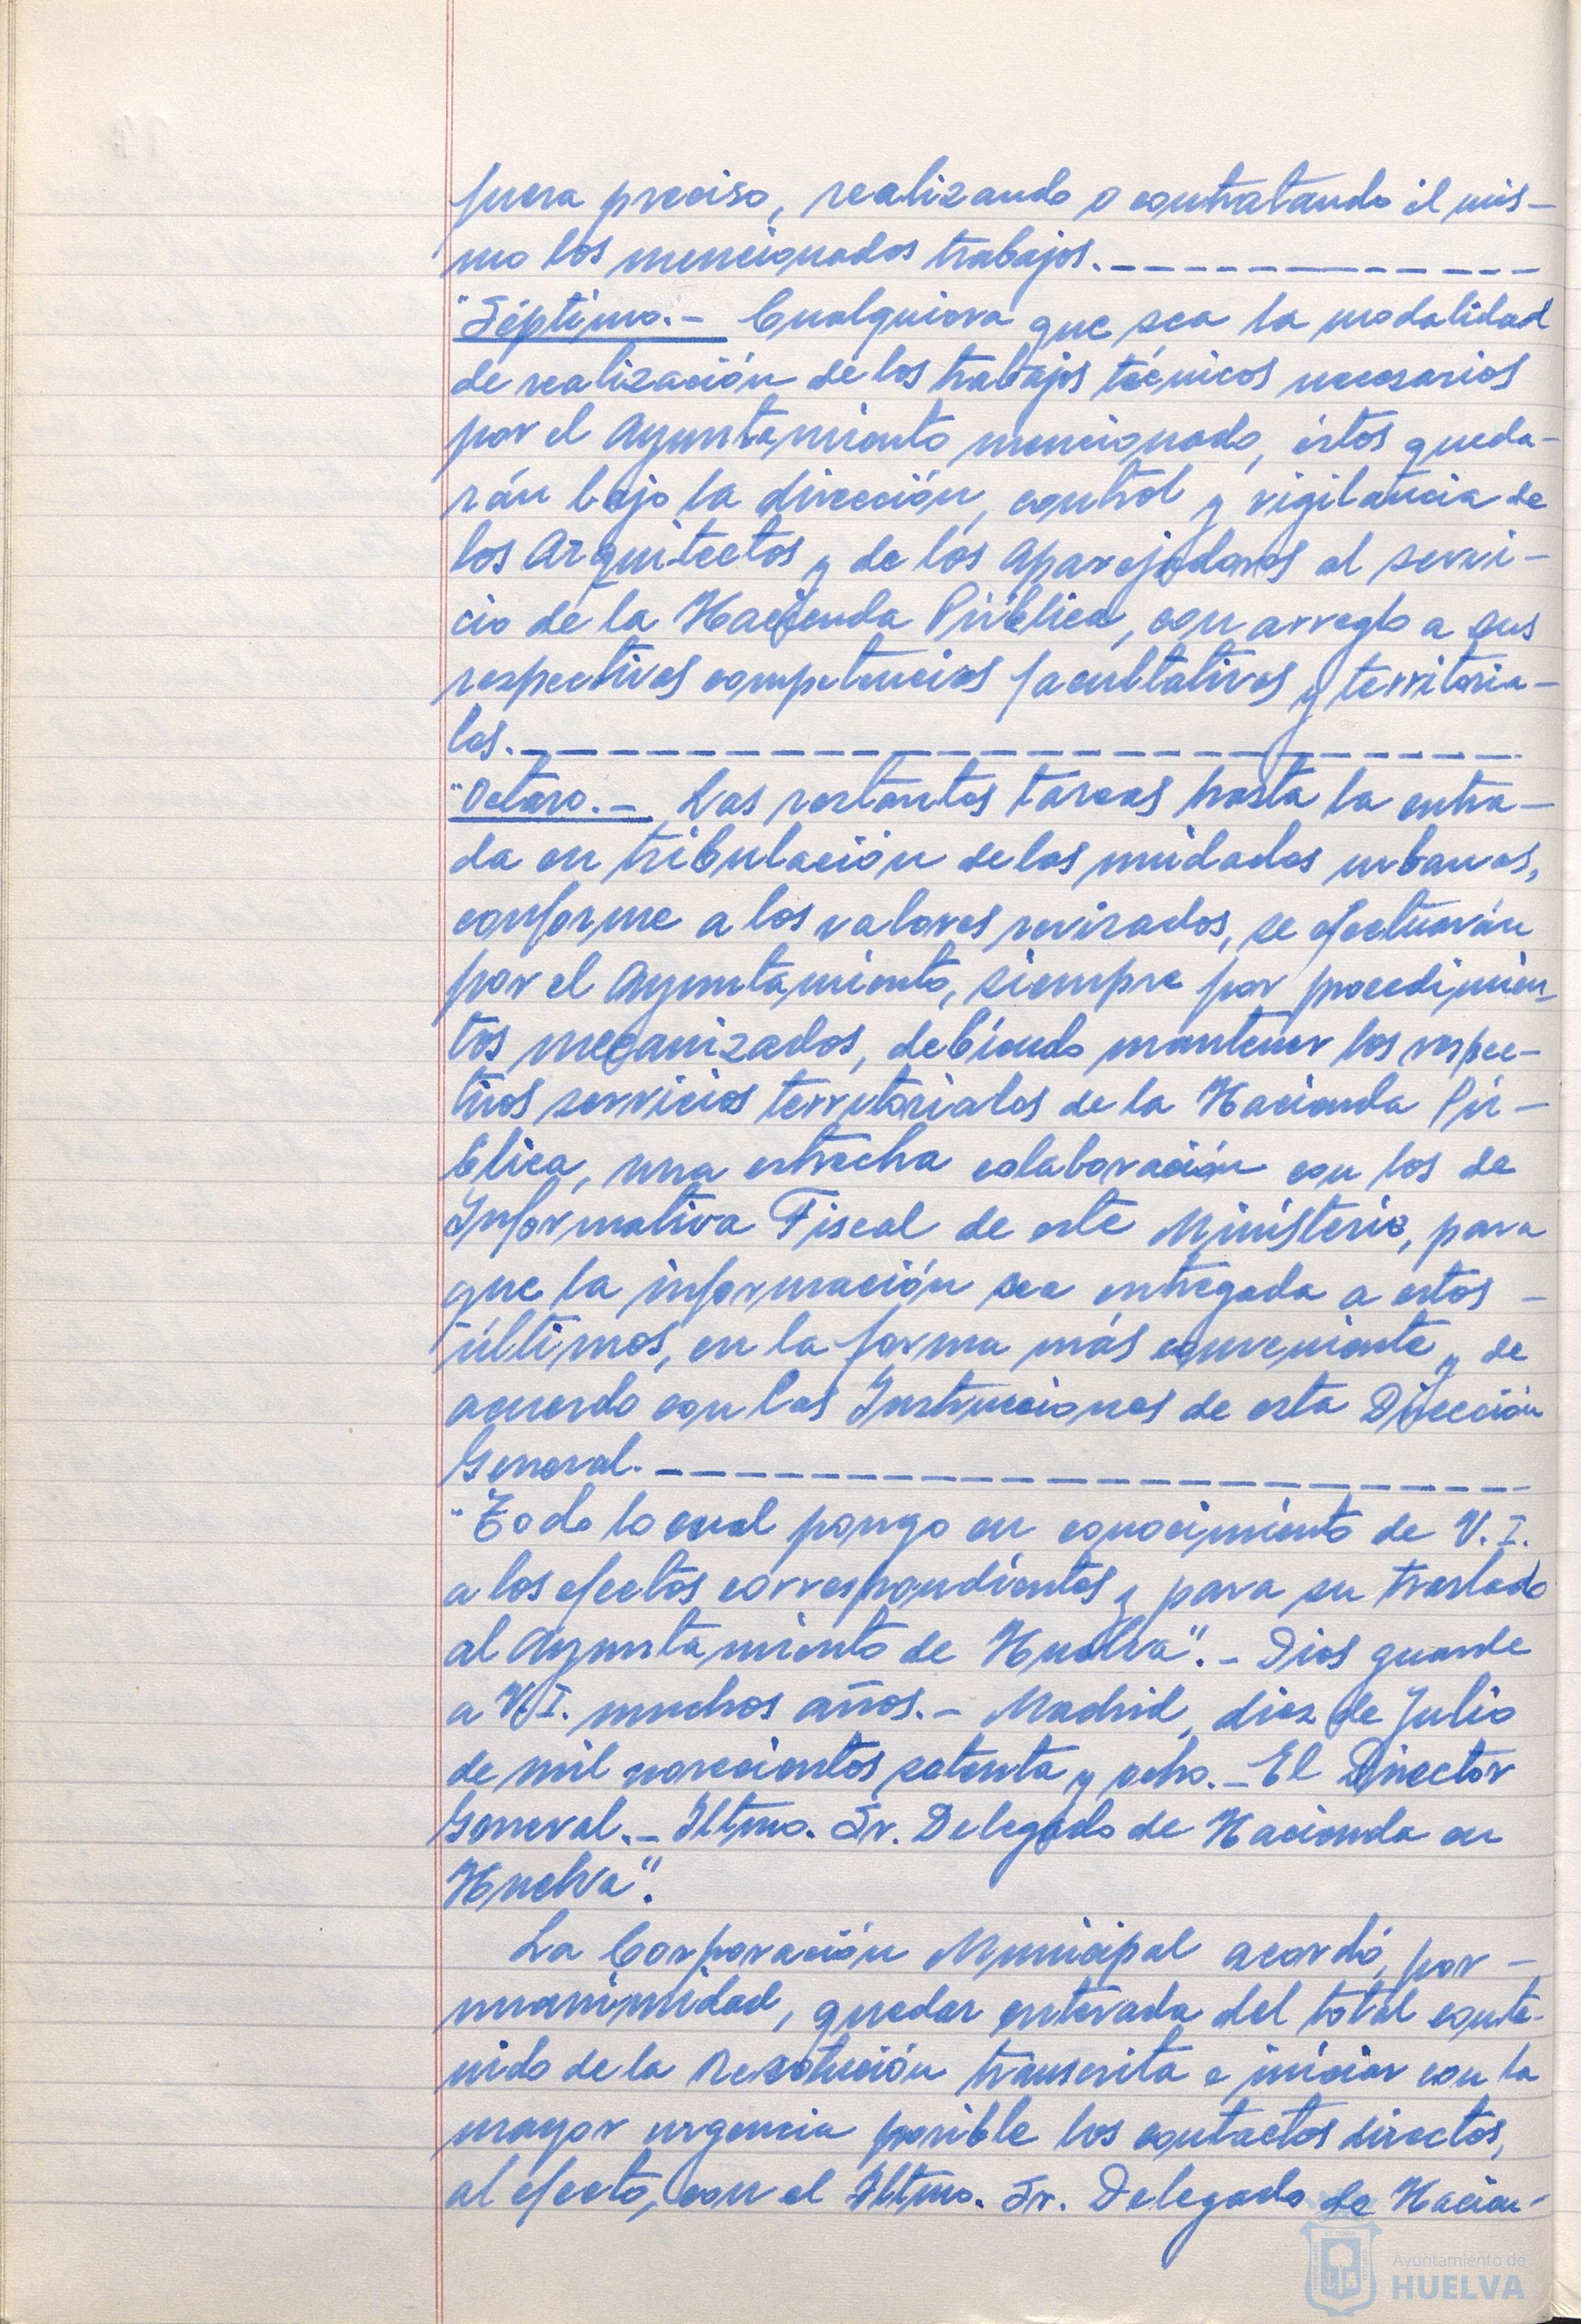 fuera preciso, realizando o contratando él mis-
mo los mencionados trabajos.-------------
"Séptimo.- Cualquiera que sea la modalidad
de realización de los trabajos técnicos necesarios
por el Ayuntamiento mencionado, éstos queda-
rán bajo la dirección, control y vigilancia de
los Arquitectos y de los Aparejadores al servi-
cio de la Hacienda Pública, con arreglo a sus
respectivas competencias facultativas y territoria-
les.-------------------------
"Octavo.- Las restantes tareas hasta la entra-
da en tributación de las unidades urbanas,
conforme a los valores revisados, se efectuarán
por el Ayuntamiento, siempre por procedimien-
tos mecanizados, debiendo mantener los respec-
tivos servicios territoriales de la Hacienda Pú-
blica, una estrecha colaboración con los de
Informativa Fiscal de este Ministerio, para
que la información sea entregada a estos -
últimos, en la forma más conveniente y de
acuerdo con las Instrucciones de esta Dirección
General.---------------------
"Todo lo cual pongo en conocimiento de V.I.
a los efectos correspondientes y para su traslado
al Ayuntamiento de Huelva".- Dios guarde
a V.I. muchos años.- Madrid, diez de Julio
de mil novecientos setenta y ocho.- El Director
General.- Iltmo. Sr. Delegado de Hacienda en
Huelva".
La Corporación Municipal acordó, por -
unanimidad, quedar enterada del total conte-
nido de la Resolución transcrita e iniciar con la
mayor urgencia posible los contactos directos,
al efecto, con el Iltmo. Sr. Delegado de Hacien-
Ayuntamiento de
HUELVA